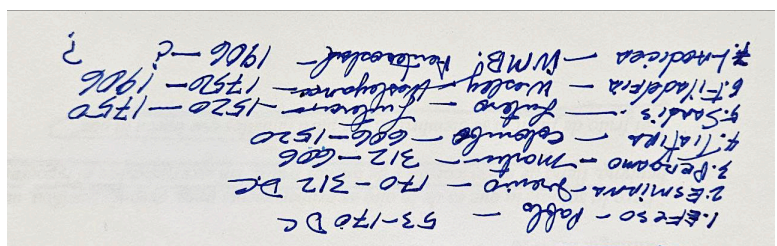 1. EFESO - Pablo - 53-170 DC
2. ESMIRNA - Irenio - 170-312 D.C.
3. Pergamo - Martin - 312-606
4. TIATIRA - Colombo - 606-1520
5. Sardis. - Lutero - Luterana - 1520-1750
6. Filadelfia - Wesley - Wesleyana - 1750-1906
7. Laodicea - WMB! Pentecostal - 1906 - ¿ ?